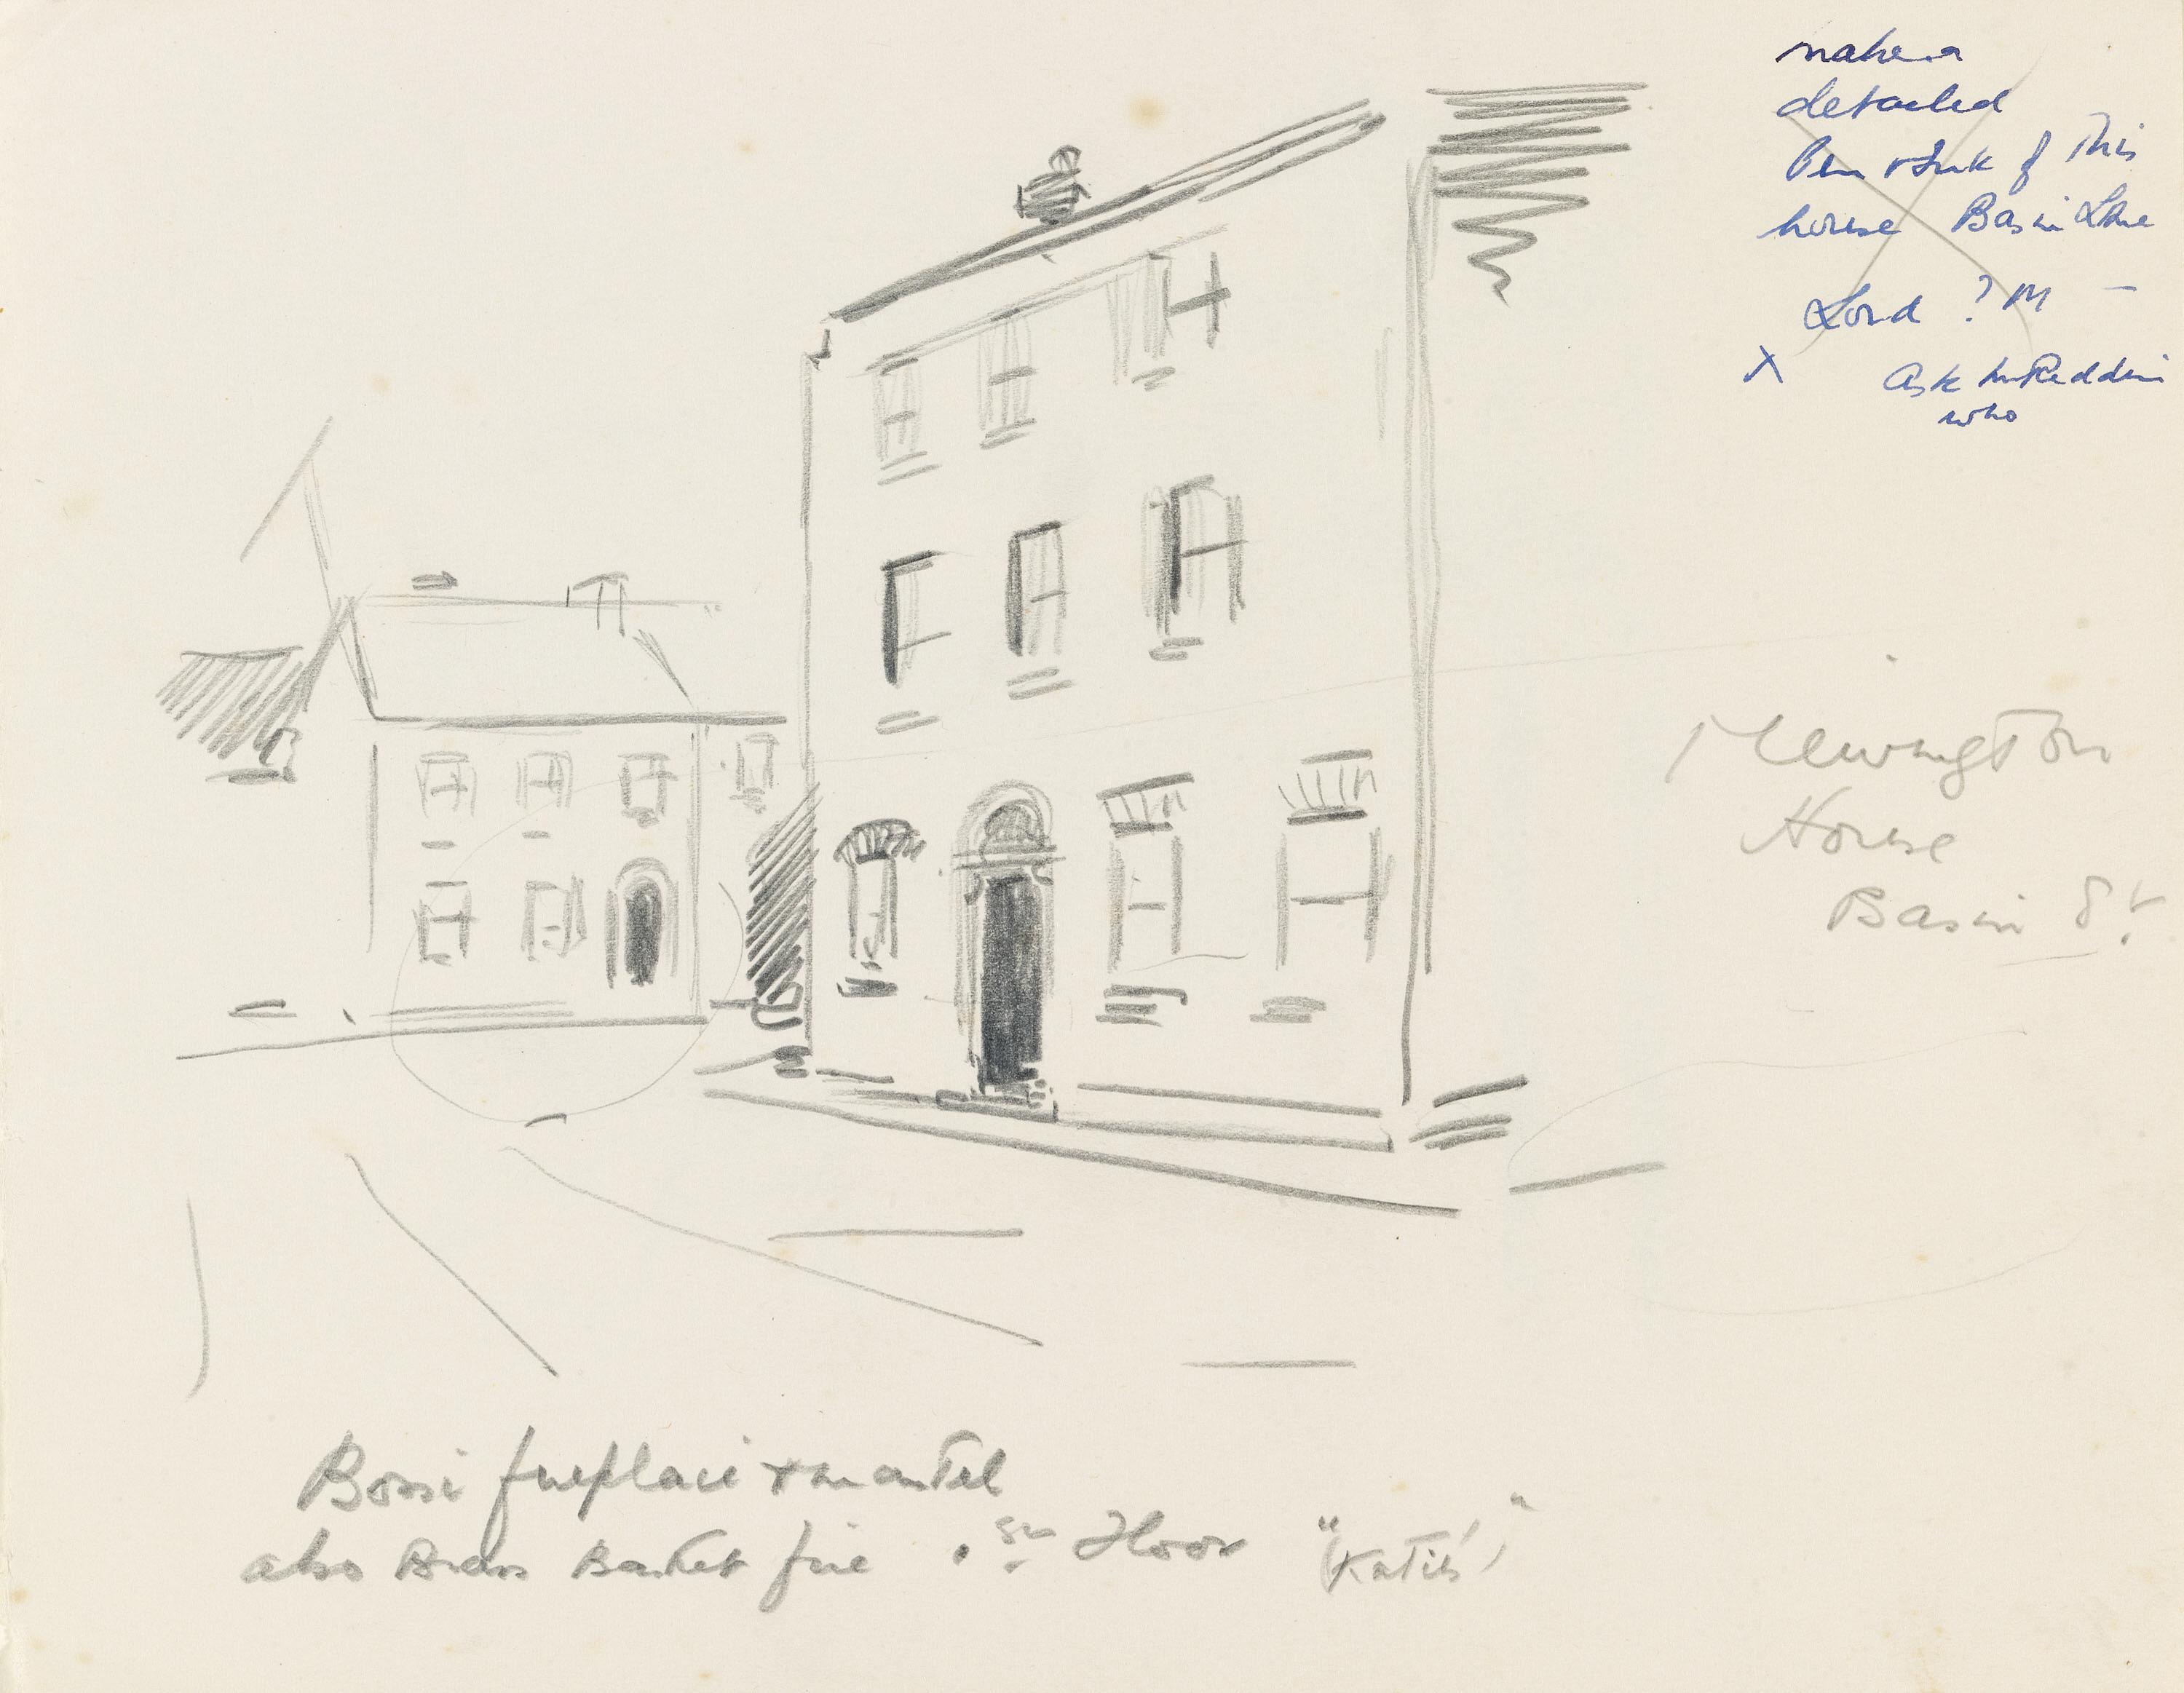 make a
detailed
Pen & Ink of This
house Basin Lane
Lord ? M —
X Ask Mr Reddin
who
Newington
House
Basin St.
Bossi fireplace & mantel
also Brass Basket fire Floor "Katie's"